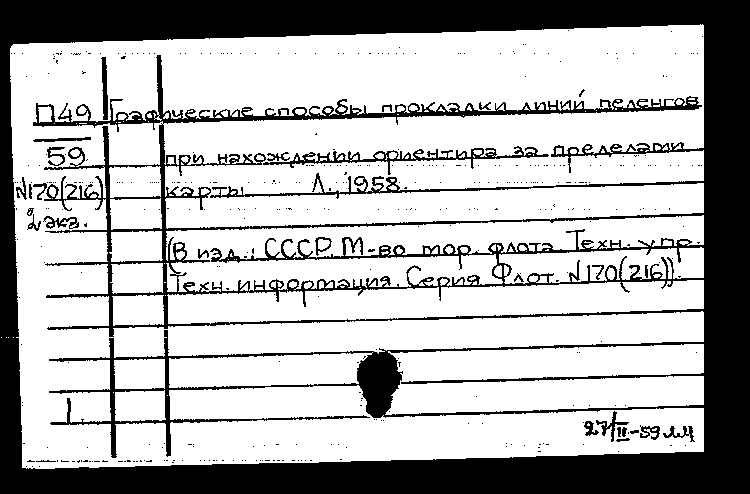 П49 Графические способы прокладки линий пеленгов
59 при нахождении ориентира за пределами
N170(216) карты Л., 1958.
2 экз.
(В изд.: СССР. М-во мор. флота Техн. упр.
Техн. информация. Серия Флот. N170(216)).
1
27/II-59